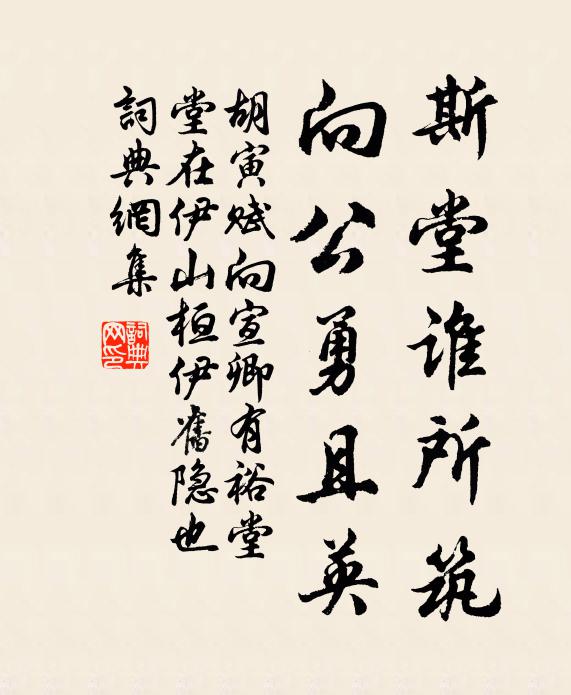 斯堂谁所筑
向公勇且英
胡寅赋向宣卿有裕堂
堂在伊山桓伊旧隐也
词典網集
詞典网印